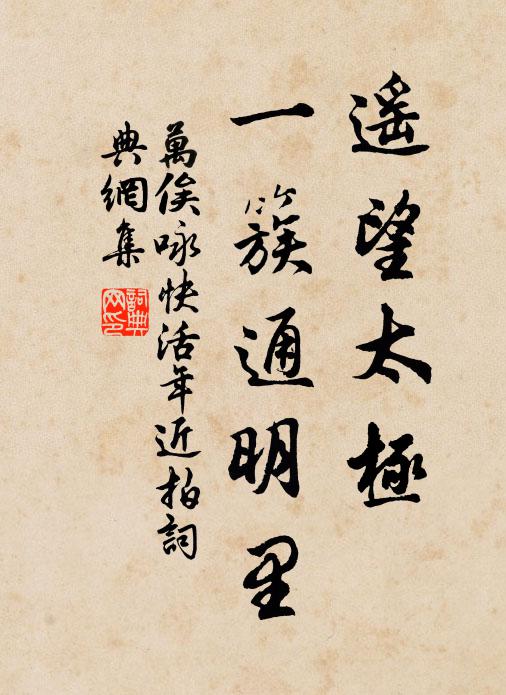 遥望太極
一簇通明里
萬俟咏快活年近拍詞
典網集
詞典網印